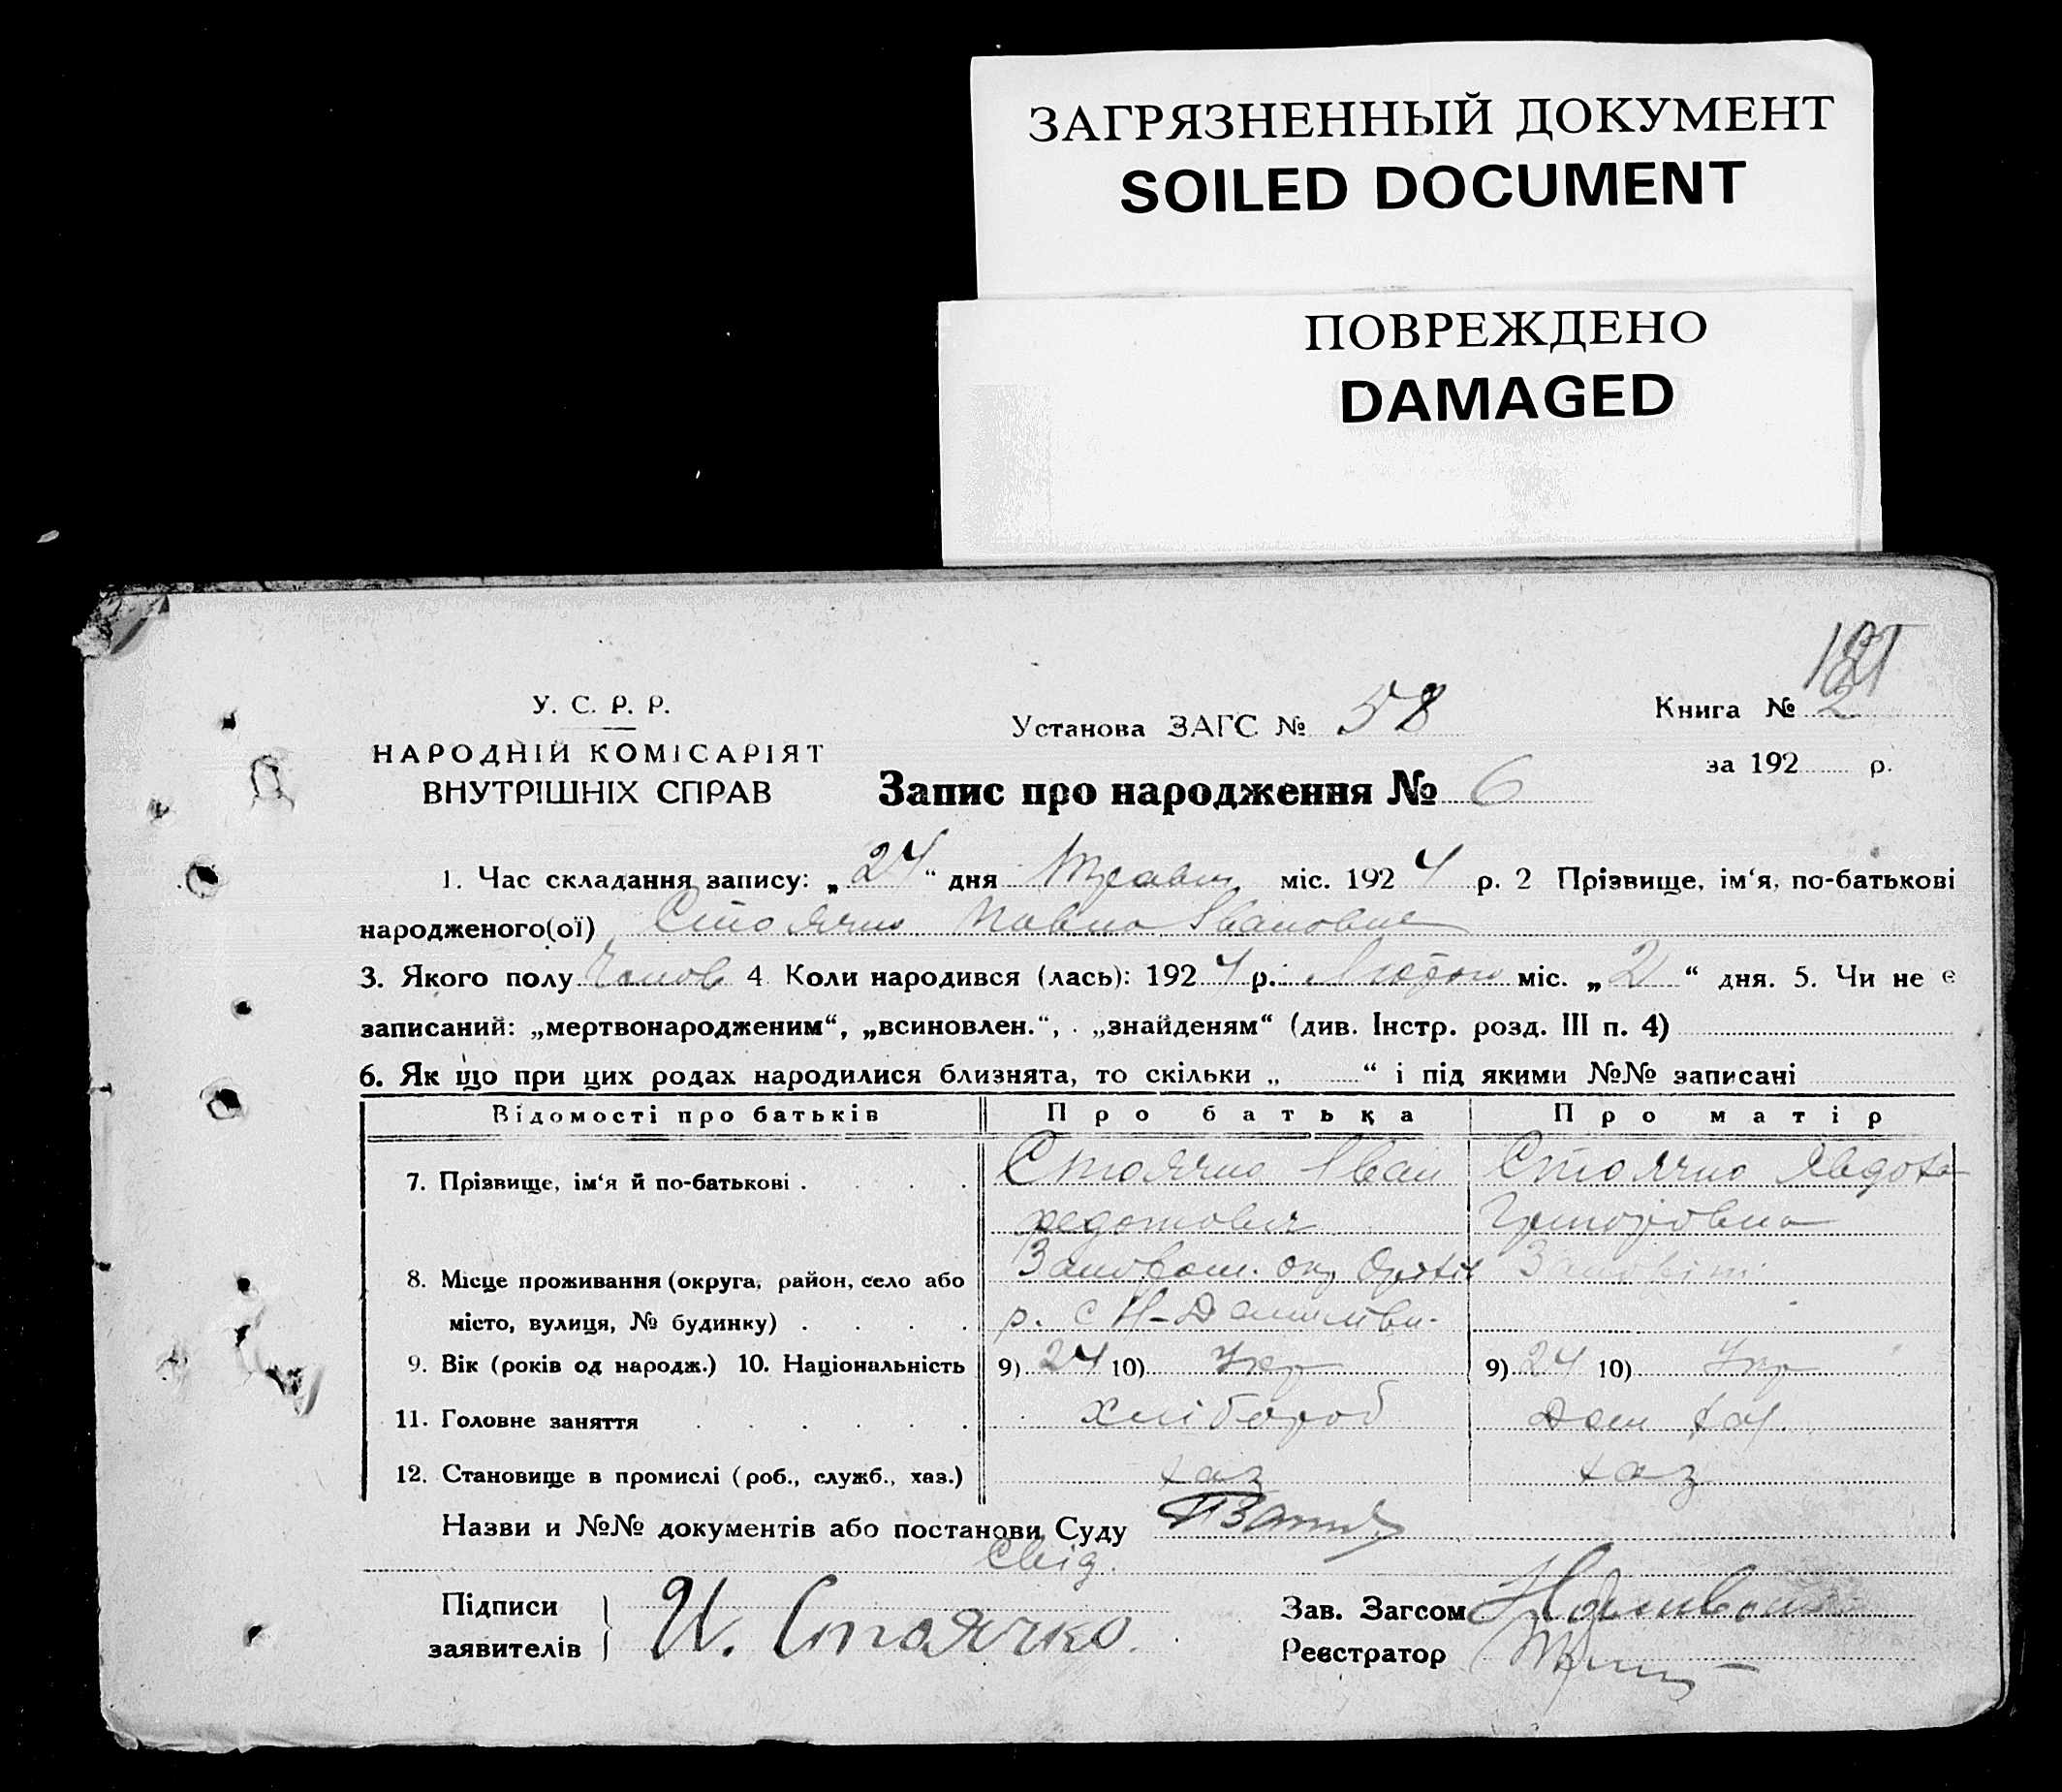 ЗАГРЯЗНЕННЫЙ ДОКУМЕНТ
SOILED DOCUMENT
ПОВРЕЖДЕНО
DAMAGED
У. С. Р. Р.
НАРОДНІЙ КОМІСАРІЯТ
ВНУТРІШНІХ СПРАВ
Установа ЗАГС № 58
Книга № 2
за 192 р.
Запис про народження № 6
1. Час складання запису: „24“ дня Травня міс. 1924 р. 2 Прізвище, ім‘я, по-батькові
народженого(ої) Стоячко Павло Іванович
3. Якого полу Чолов 4 Коли народився (лась): 1924 р. Лютого міс. „2“ дня. 5. Чи не є
записаний: „мертвонародженим“, „всиновлен.“, „знайденям“ (див. Інстр. розд. III п. 4)
6. Як що при цих родах народилися близнята, то скільки „ “ і під якими №№ записані
Відомості про батьків Про батька Про матір
7. Прізвище, ім‘я й по-батькові . Стоячко Іван Стоячко Явдоха
Федотович Григоровна
8. Місце проживання (округа, район, село або
місто, вулиця, № будинку) р. с Н-
9. Вік (років од народж.) 10. Національність 9) 24 10) Укр 9) 24 10) Укр
11. Головне заняття хлібороб Дом хаз
12. Становище в промислі (роб., служб., хаз.) хаз хаз
Назви и №№ документів або постанови Суду
Свід.
Підписи
заявителів И. Стоячко
Зав. Загсом
Реєстратор